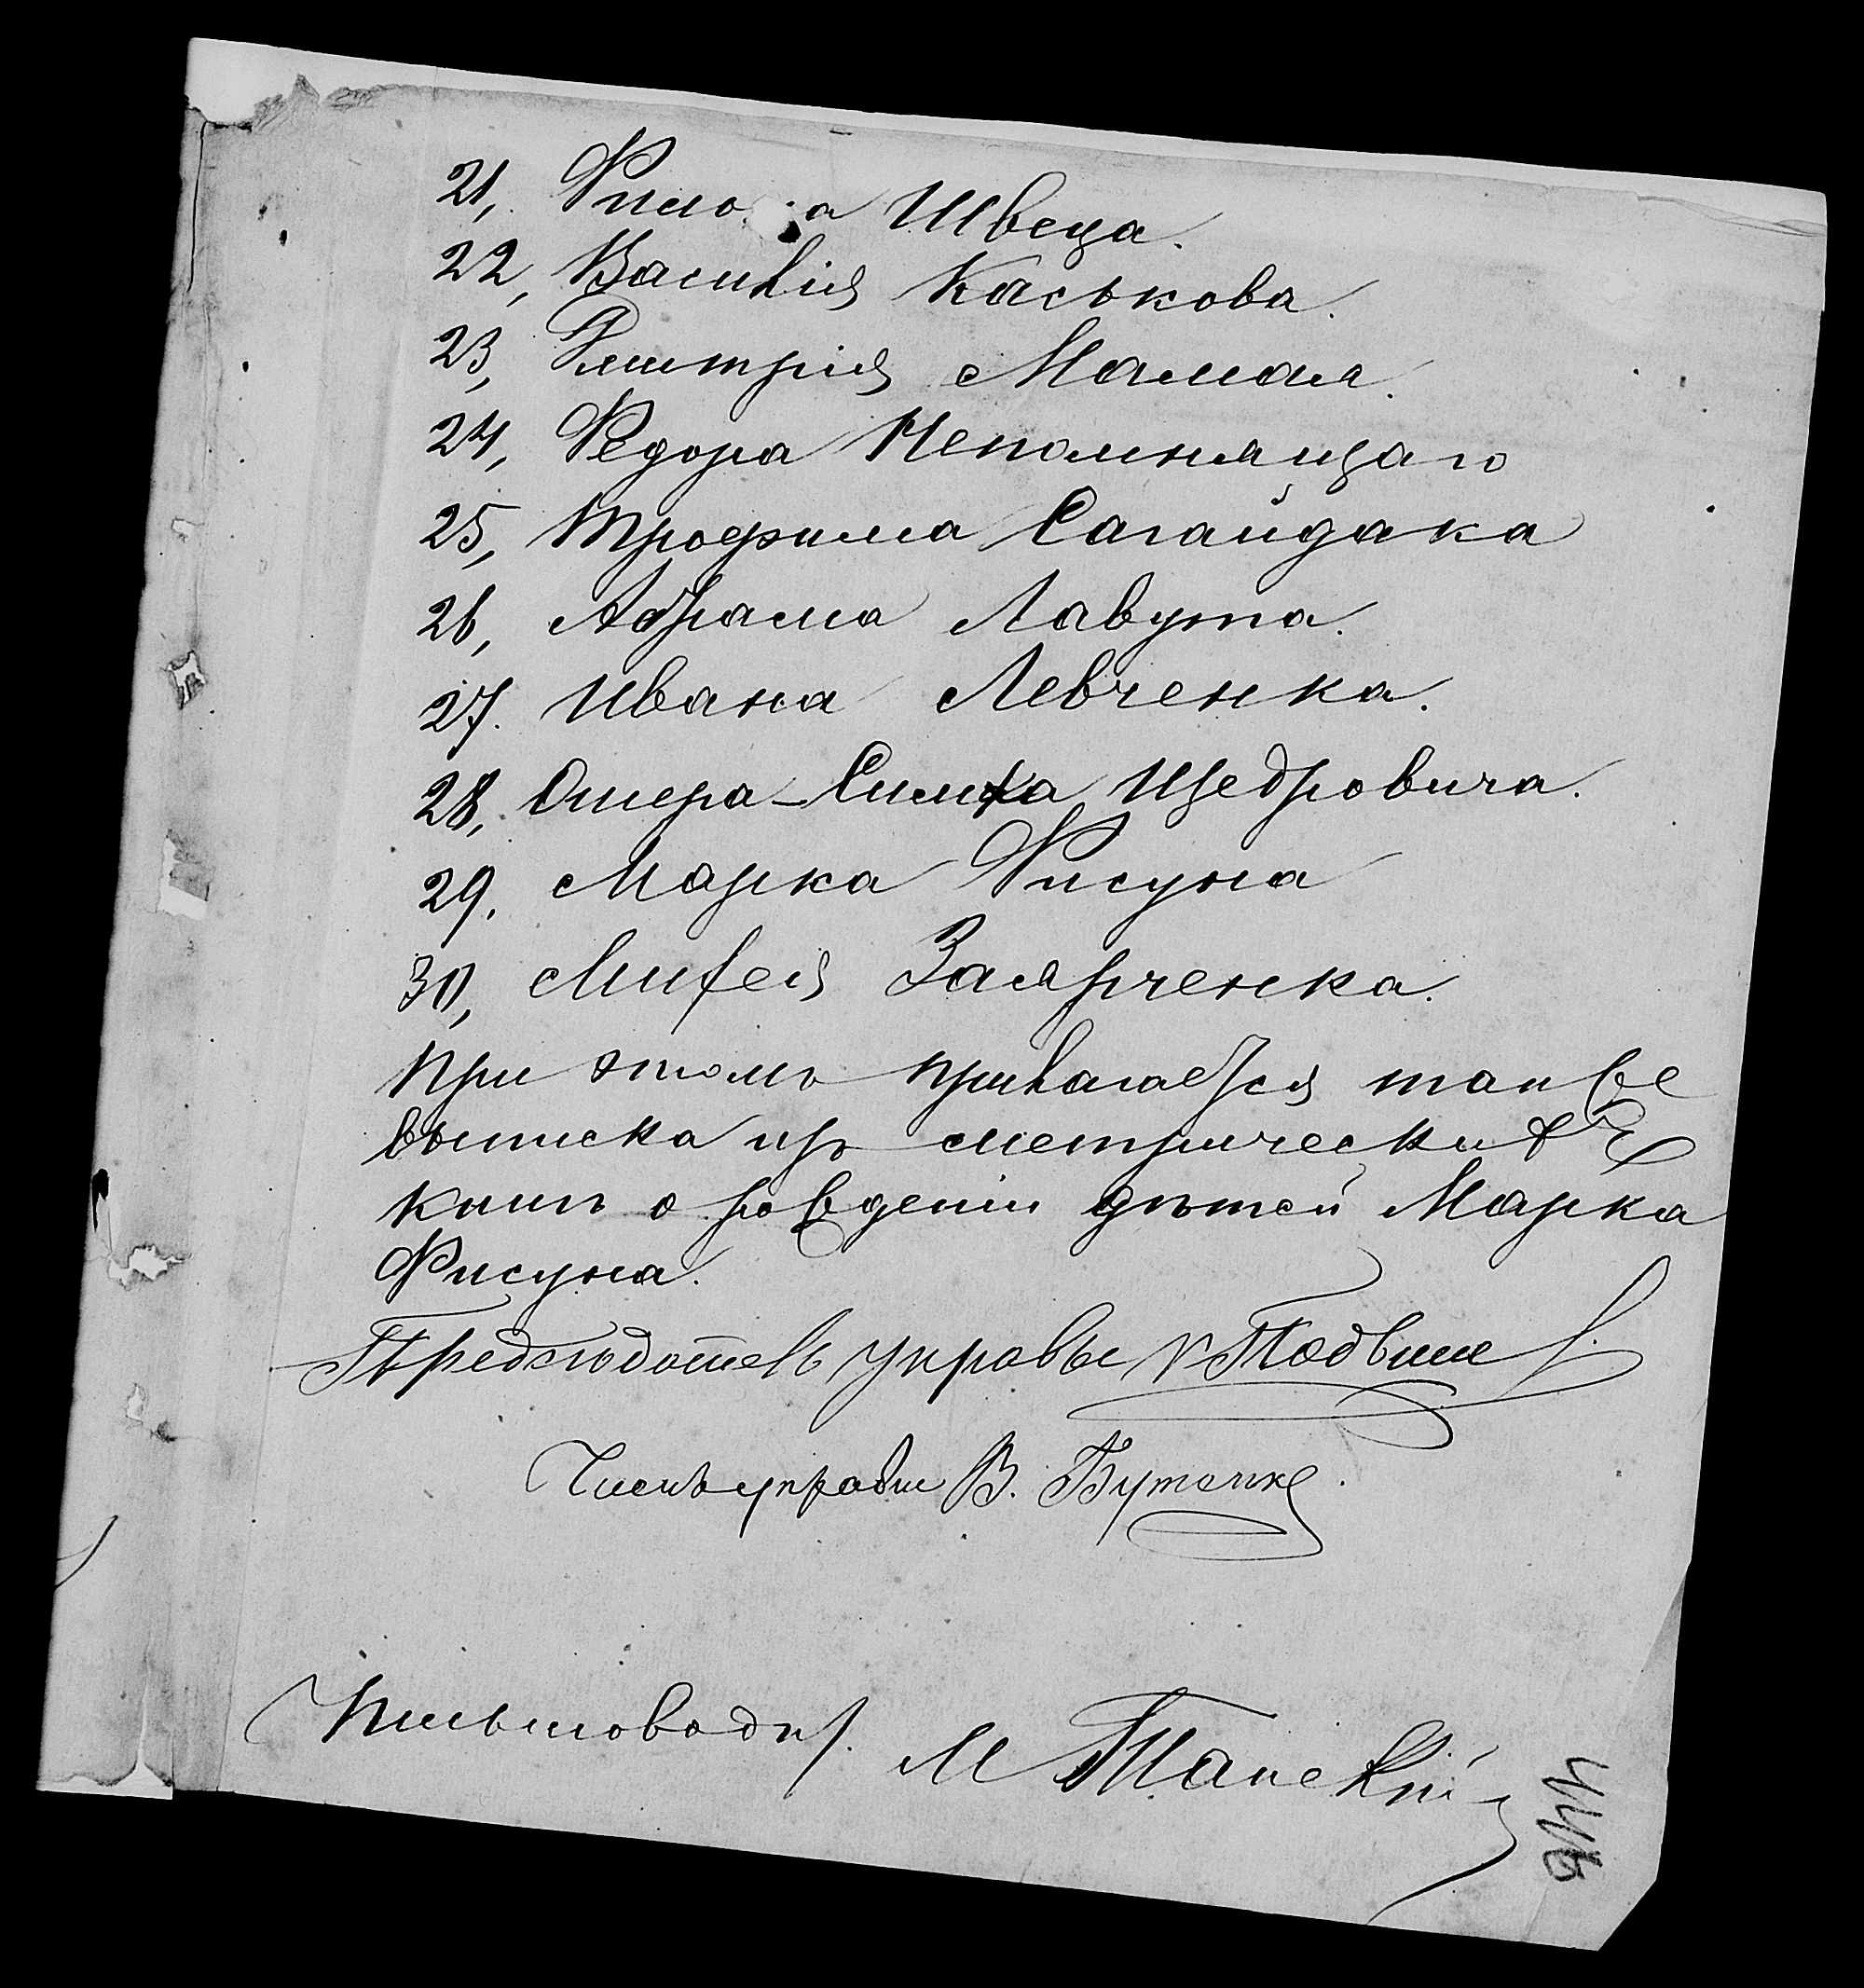 21, Фило а Швеца.
22, Василія Каськова.
23, Дмитрія Мамая.
24, Федора Непомнящаго
25, Трофима Сагайдака
26, Абрама Лавута.
27. Ивана Левченка.
28, Ошера-Симха Щедровича.
29. Марка Фисуна
30, Михея Заярченка.
при этомъ прилагается также
выписка изъ метрическихъ
книгъ о рожденіи дѣтей Марка
Фисуна.
Предсѣдатель управы
Членъ управы В. Бутенко.
Письмоводит. М